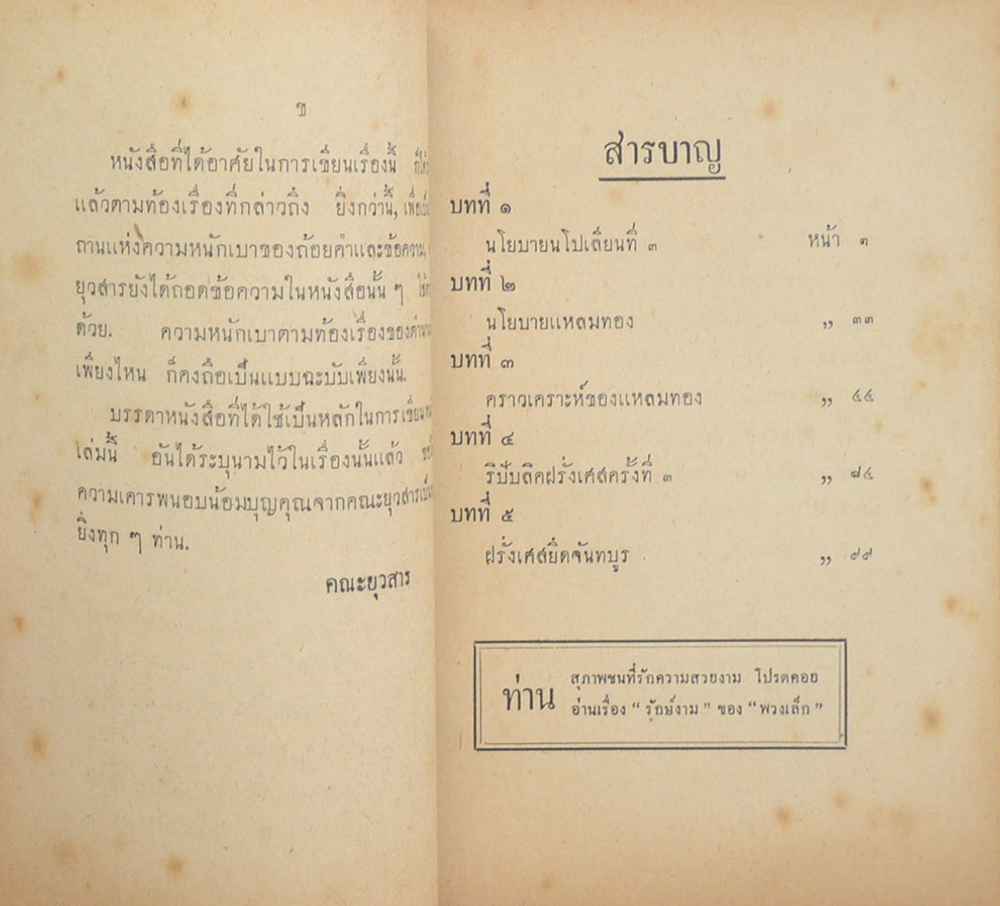 ข
หนังสือที่ได้อาศัยในการเขียนเรื่องนี้
แล้วตามท้องเรื่องที่กล่าวถึง ยิ่งกว่านี้,
ถานแห่งความหนักเบาของถ้อยคำและข้อความ,
ยุวสารยังได้ถอดข้อความในหนังสือนั้น ๆ
ด้วย. ความหนักเบาตามท้องเรื่องของ
เพียงไหน ก็คงถือเป็นแบบฉะบับเพียงนั้น.
บรรดาหนังสือที่ได้ใช้เป็นหลักในการเขียน
เล่มนี้ อันได้ระบุนามไว้ในเรื่องนั้นแล้ว
ความเคารพนอบน้อมบุญคุณจากคณะยุวสาร
ยิ่งทุก ๆ ท่าน.
คณะยุวสาร
สารบาญ
บทที่ ๑
นโยบายนโปเลียนที่ ๓ หน้า ๑
บทที่ ๒
นโยบายแหลมทอง ,, ๓๓
บทที่ ๓
คราวเคราะห์ของแหลมทอง ,, ๔๔
บทที่ ๔
ริปับลิคฝรั่งเศสครั้งที่ ๓ ,, ๘๔
บทที่ ๕
ฝรั่งเศสยึดจันทบูร ,, ๙๙
ท่าน สุภาพชนที่รักความสวยงาม โปรดคอย
อ่านเรื่อง “ รักษ์งาม ” ของ “ พวงเล็ก ”